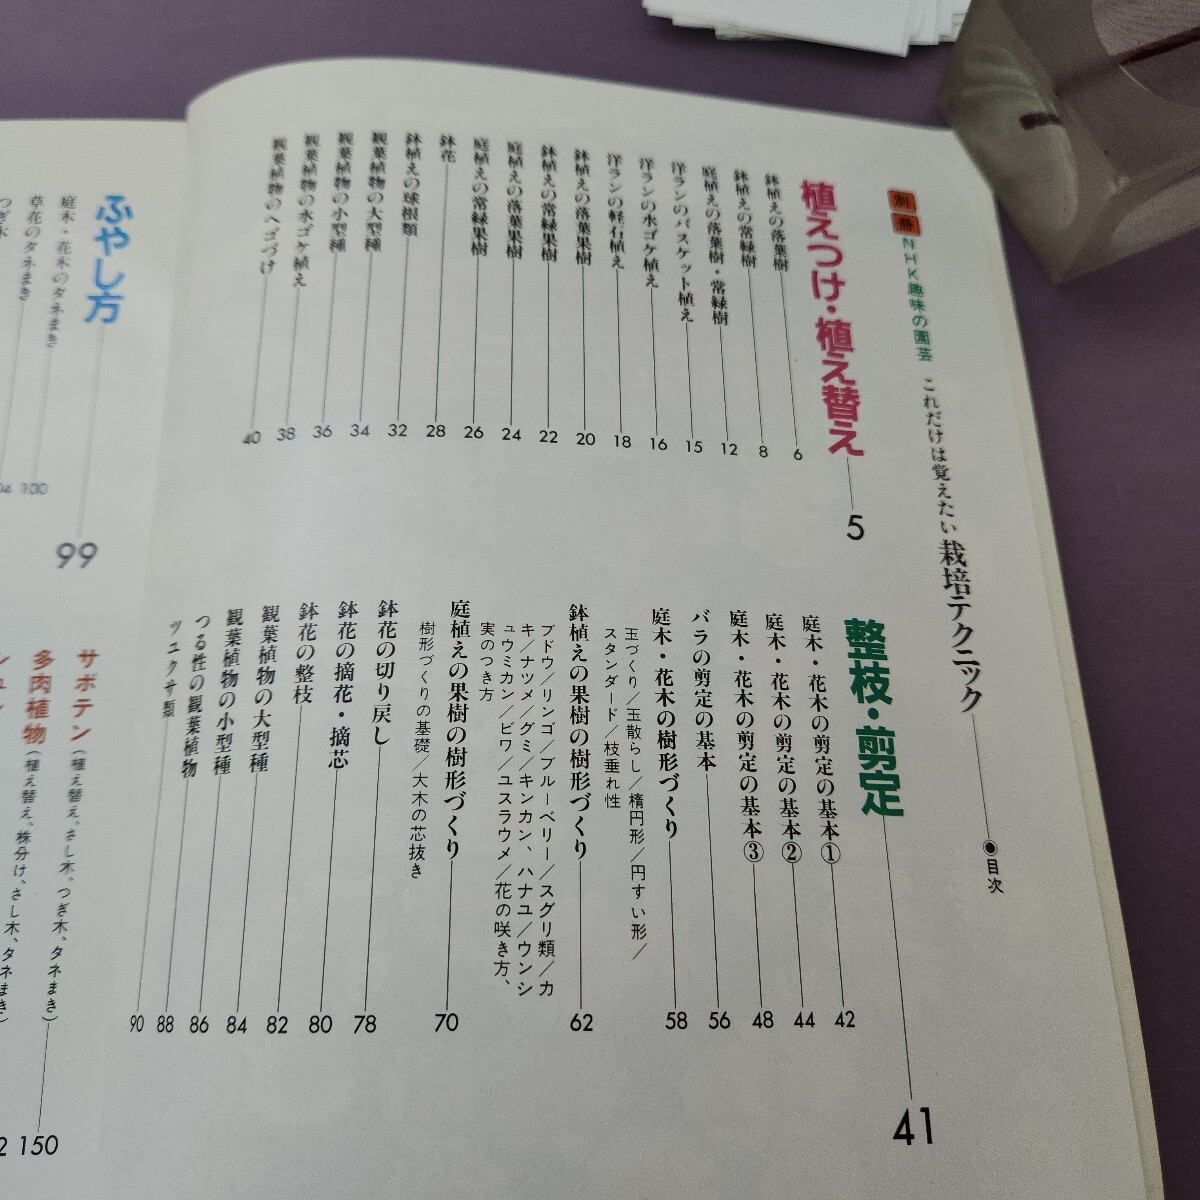 別冊 NHK趣味の園芸 これだけは覚えたい 栽培テクニック ◉目次
植えつけ・植え替え 5
鉢植えの落葉樹 6
鉢植えの常緑樹 8
庭植えの落葉樹・常緑樹 12
洋ランのバスケット植え 15
洋ランの水ゴケ植え 16
洋ランの軽石植え 18
鉢植えの落葉果樹 20
鉢植えの常緑果樹 22
庭植えの落葉果樹 24
庭植えの常緑果樹 26
鉢花 28
鉢植えの球根類 32
観葉植物の大型種 34
観葉植物の小型種 36
観葉植物の水ゴケ植え 38
観葉植物のヘゴづけ 40
整枝・剪定 41
庭木・花木の剪定の基本① 42
庭木・花木の剪定の基本② 44
庭木・花木の剪定の基本③ 48
バラの剪定の基本 56
庭木・花木の樹形づくり 58
玉づくり/玉散らし/楕円形/円すい形/
スタンダード/枝垂れ性
鉢植えの果樹の樹形づくり 62
ブドウ/リンゴ/ブルーベリー/スグリ類/カ
キ/ナツメ/グミ/キンカン、ハナユ/ウンシ
ュウミカン/ビワ/ユスラウメ/花の咲き方、
実のつき方
庭植えの果樹の樹形づくり 70
樹形づくりの基礎/大木の芯抜き
鉢花の切り戻し 78
鉢花の摘花・摘芯 80
鉢花の整枝 82
観葉植物の大型種 84
観葉植物の小型種 86
つる性の観葉植物 88
ツユクサ類 90
ふやし方 99
庭木・花木のタネまき 100
草花のタネまき
つぎ木
サボテン(植え替え、さし木、つぎ木、タネまき) 150
多肉植物(植え替え、株分け、さし木、タネまき)